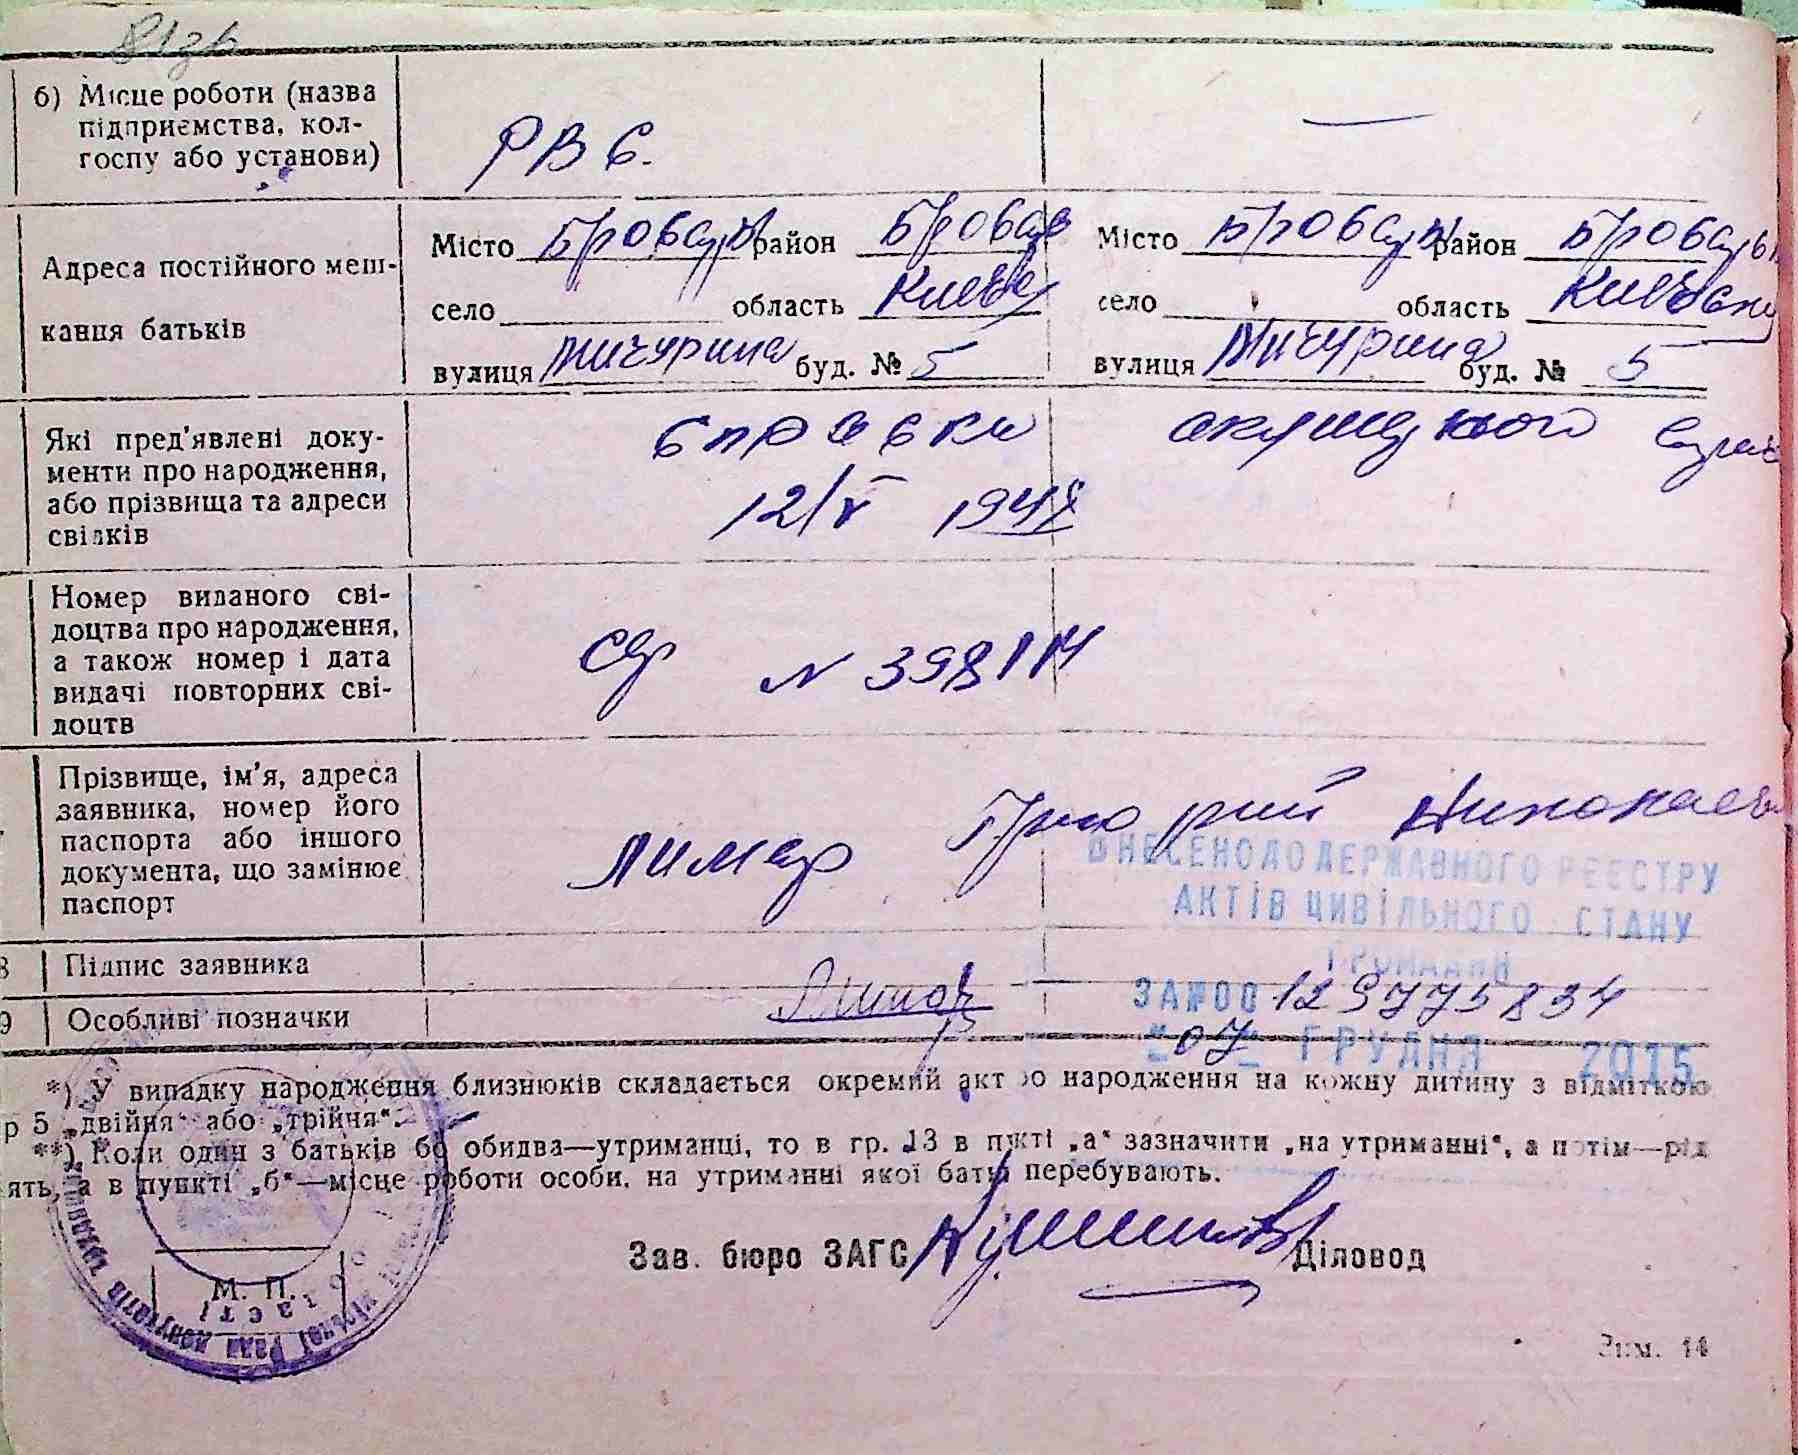 б) Місце роботи (назва
підприємства, кол-
госпу або установи)
РВС.
—
Адреса постійного меш-
канця батьків
Місто Бровары район Бровар
село область Киевск
вулиця Мичурина буд. № 5
Місто Бровары район Бровары
село область Киевску
вулиця Мичурина буд. № 5
Які пред'явлені доку-
менти про народження,
або прізвища та адреси
свідків
справки
12/V 1948
Номер виданого сві-
доцтва про народження,
а також номер і дата
видачі повторних сві-
доцтв
N 398114
Прізвище, ім'я, адреса
заявника, номер його
паспорта або іншого
документа, що замінює
паспорт
Лимар Григорий Николаев
ВНЕСЕНО ДО ДЕРЖАВНОГО РЕЄСТРУ
АКТІВ ЦИВІЛЬНОГО СТАНУ
ГРОМАДЯН
ЗА №00 129775834
"07" ГРУДНЯ 2015
8 Підпис заявника
Лимар
9 Особливі позначки
*) У випадку народження близнюків складається окремий акт ро народження на кожну дитину з відміткою
р 5 „двійня“ або „трійня“.
**) Коли один з батьків бо обидва—утриманці, то в гр. 13 в пункті „а“ зазначити „на утриманні“, а потім—рід
ять, а в пункті „б“—місце роботи особи, на утриманні якої батьк перебувають.
Зав. бюро ЗАГС Діловод
М. П.
Зам. 14